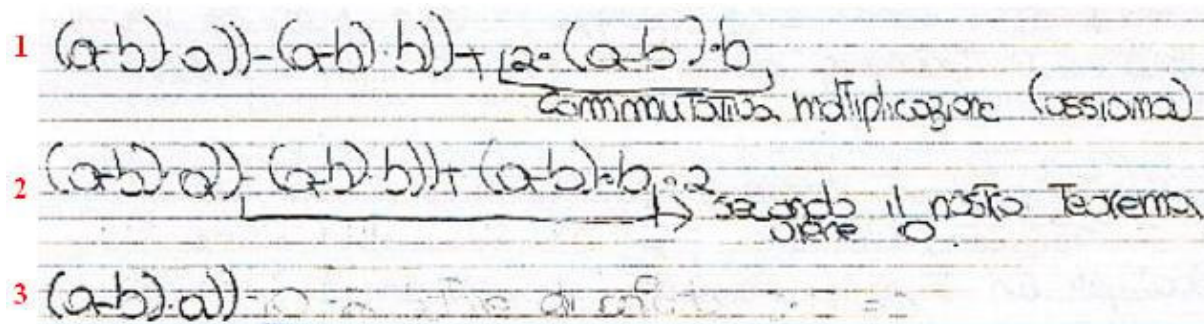 1 (a-b)·a))-(a-b)·b))+ 2·(a-b)·b
commmutativa moltiplicazione (assioma)
2 (a-b)·a))-(a-b)·b))+ (a-b)·b·2
secondo il nostro Teorema
viene 0
3 (a-b)·a))-